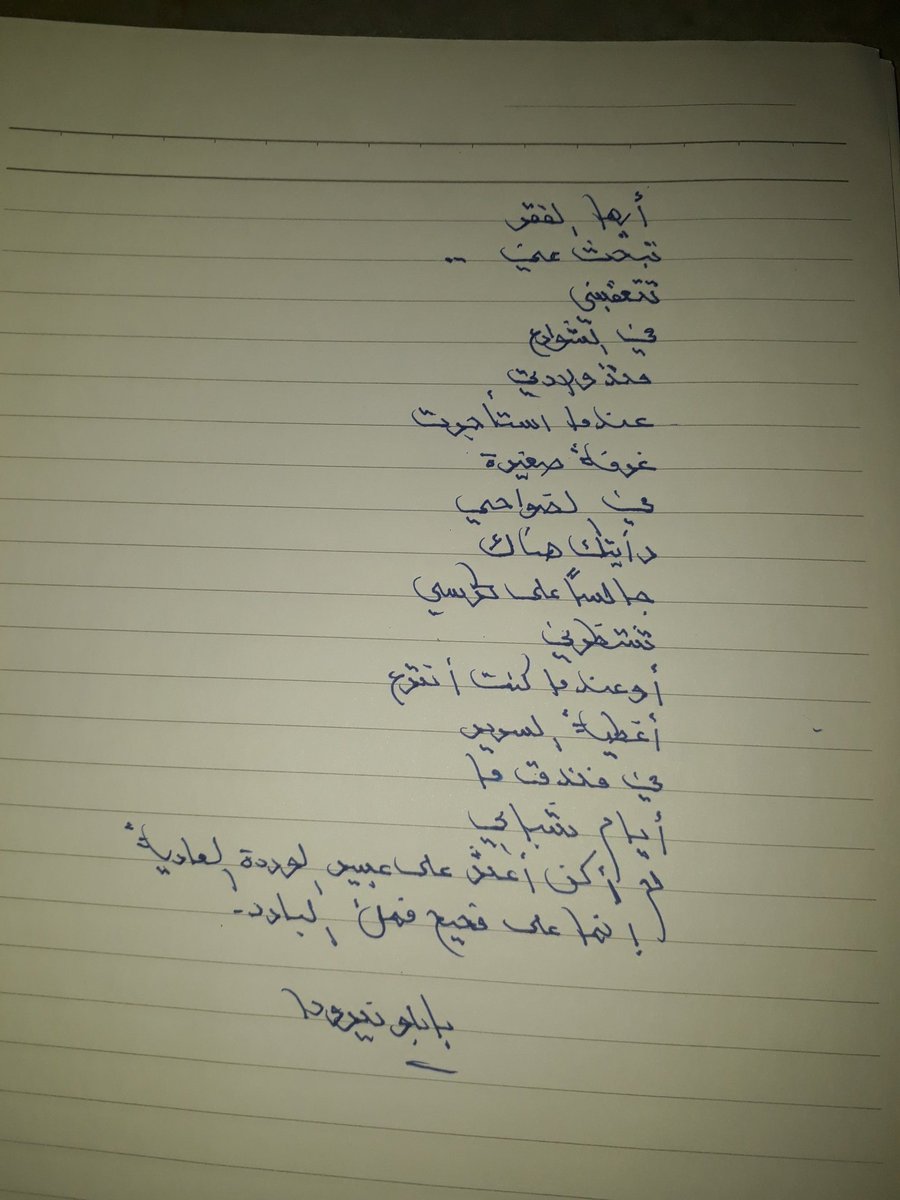 أيها الفقر
تبحث عني ..
تتعقبني
في الشوارع
منذ ولادتي
عندما استأجرت
غرفةً صغيرة
في الضواحي
رأيتك هناك
جالساً على كرسي
تنتظرني
أو عندما كنت أنتزع
أغطيةَ السرير
في فندقٍ ما
أيام شبابي
لم أكن أعثر على عبير الوردة العاديةِ
إنما على فحيح فمك البارد.
بابلو نيرودا